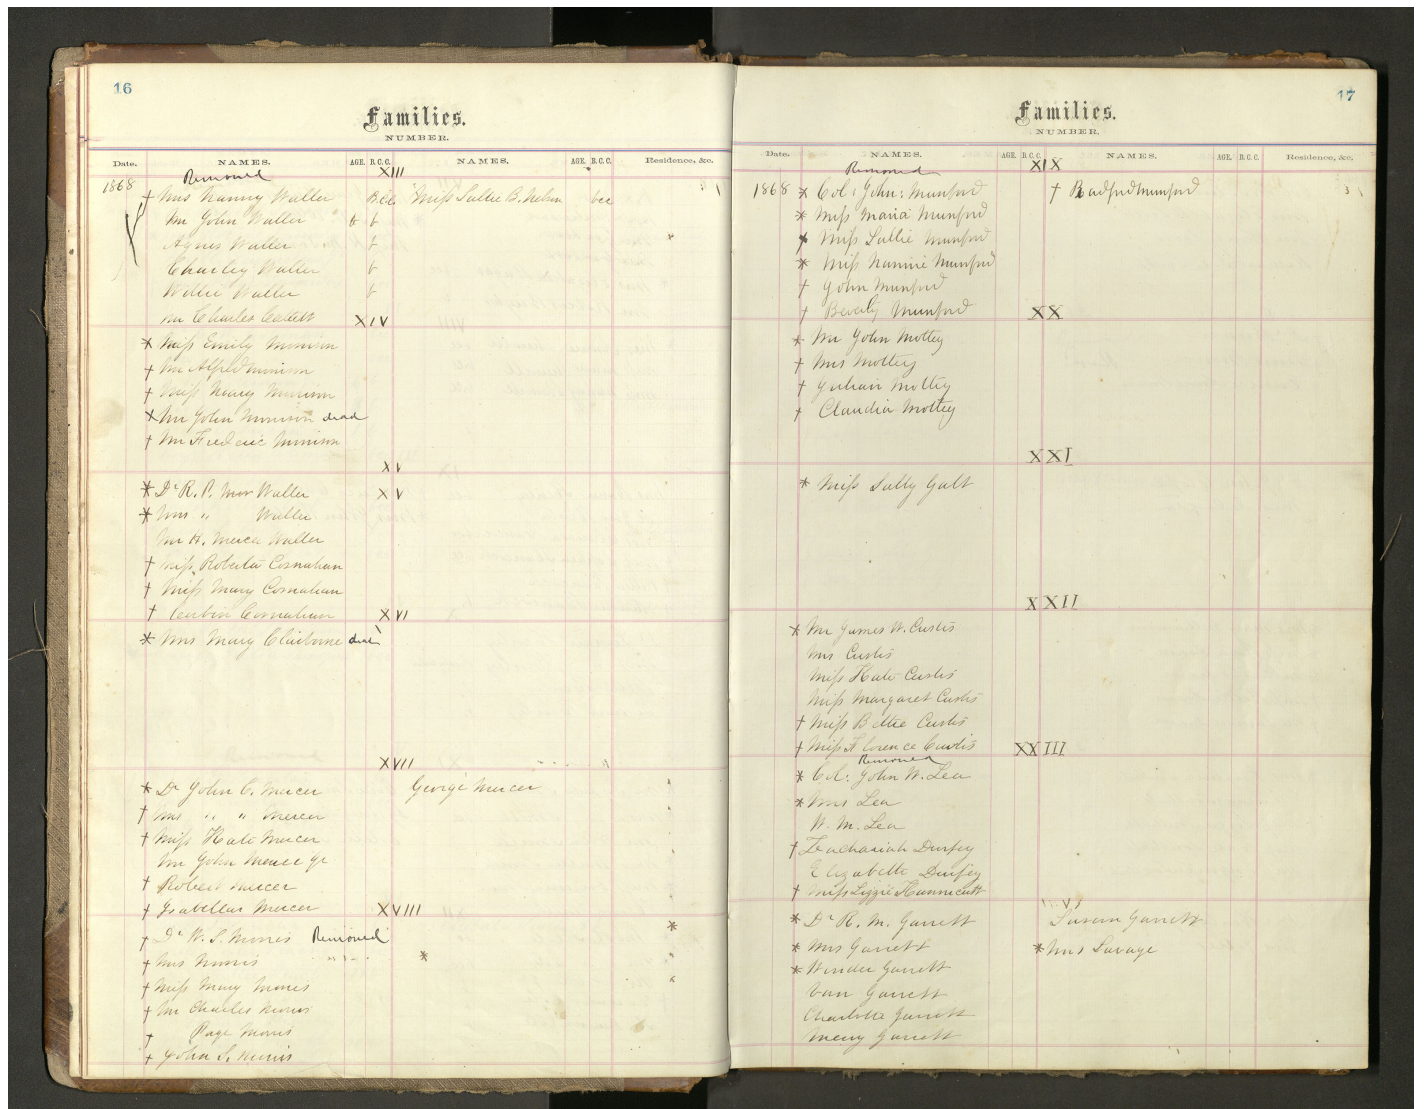 16
Families.
NUMBER.
Date. NAMES. AGE. B. C. C. NAMES. AGE. B. C. C. Residence, &c.
Removed XIII
1868 † Mrs Nanny Waller B.cc Miss Sallie B. Nelson bcc
Mr John Waller b
Agnes Waller b
Charley Waller b
Willie Waller b
Mr Charles Catlett XIV
* Miss Emily Minison
† Mr Alfred Minison
† Miss Nancy Minison
* Mr John Minison dead
† Mr Frederic Minison
XV
* Dr R. P. Waller XV
* Mrs " Waller
Mr H. Mercer Waller
† Miss Roberta Cosnahan
† Miss Mary Cosnahan
† Cosnahan XVI
* Mrs Mary Claiborne dead
XVII
* Dr John C. Mercer George Mercer
† Mrs " " Mercer
† Miss Kate Mercer
Mr John Mercer Jr
† Robert Mercer
† Isabella Mercer XVIII
† Dr W. S. Morris Removed
† Mrs Morris *
† Miss Mary Morris
† Mr Charles Morris
† Page Morris
† John S. Morris
17
Families.
NUMBER.
Date. NAMES. AGE. B. C. C. NAMES. AGE. B. C. C. Residence, &c.
Removed XIX
1868 * Col: John: Munford † Radford Munford
* Miss Maria Munford
* Miss Sallie Munford
* Miss Nannie Munford
† John Munford
† Beverly Munford XX
* Mr John Mottey
† Mrs Mottey
† Julian Mottey
† Claudia Mottey
XXI
* Miss Sally Galt
XXII
* Mr James W. Custis
Mrs Custis
Miss Kate Custis
Miss Margaret Custis
† Miss Bettie Custis
† Miss Florence Custis XXIII
Removed
* Col: John W. Lea
* Mrs Lea
W. M. Lea
† Zachariah Durfey
Elizabeth Durfey
† Miss Lizzie Hunnicutt
* Dr R. M. Garrett Susan Garrett
* Mrs Garrett * Mrs Savage
* Winder Garrett
Van Garrett
Charlotte Garrett
Mary Garrett